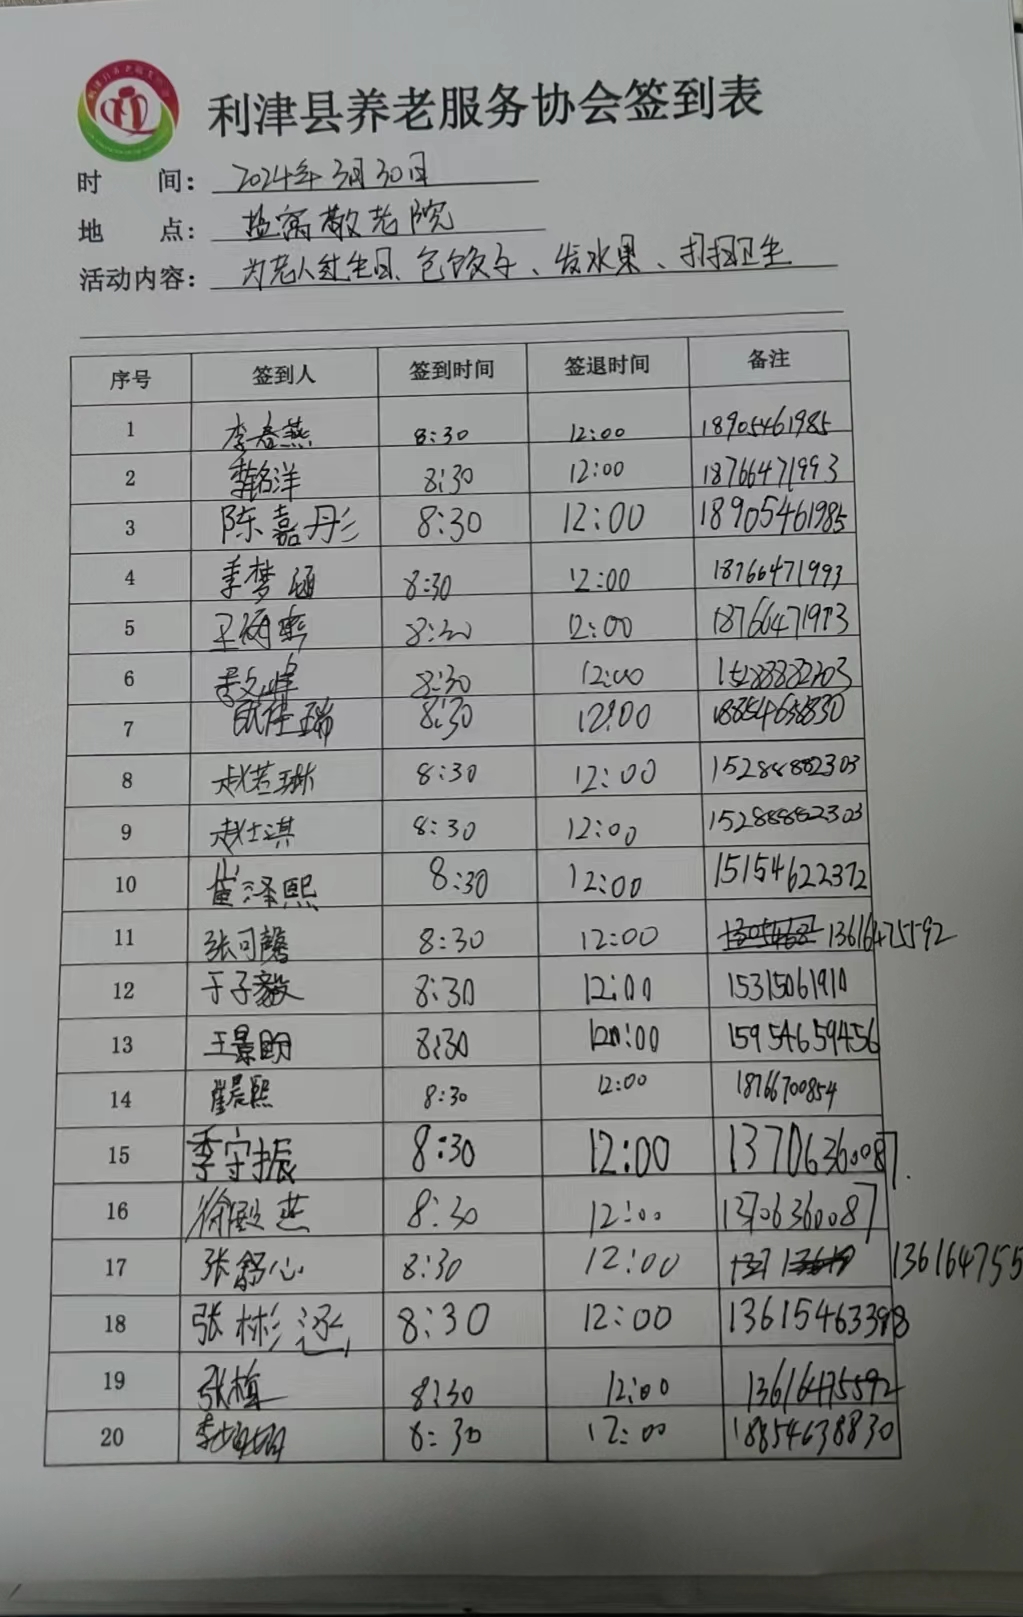 利津县养老服务协会签到表
时 间: 2024年3月30日
地 点: 盐窝敬老院
活动内容: 为老人过生日、包饺子、发水果、打扫卫生
序号 签到人 签到时间 签退时间 备注
1 李春燕 8:30 12:00 18905461985
2 李铭洋 8:30 12:00 18766471993
3 陈嘉彤 8:30 12:00 18905461985
4 季梦涵 8:30 12:00 18766471993
5 8:30 12:00 18766471993
6 8:30 12:00 15288882303
7 8:30 12:00 18854638830
8 赵若琳 8:30 12:00 15288882303
9 赵士淇 8:30 12:00 15288882303
10 崔泽熙 8:30 12:00 15154622372
11 张可馨 8:30 12:00 13616475592
12 于子毅 8:30 12:00 15315061910
13 王景昀 8:30 12:00 15954659456
14 崔晨熙 8:30 12:00 18766700854
15 季守振 8:30 12:00 13706360087
16 徐殿燕 8:30 12:00 13706360087
17 张舒心 8:30 12:00 136164755
18 张彬 8:30 12:00 13615463398
19 张植 8:30 12:00 13616475592
20 8:30 12:00 18854638830